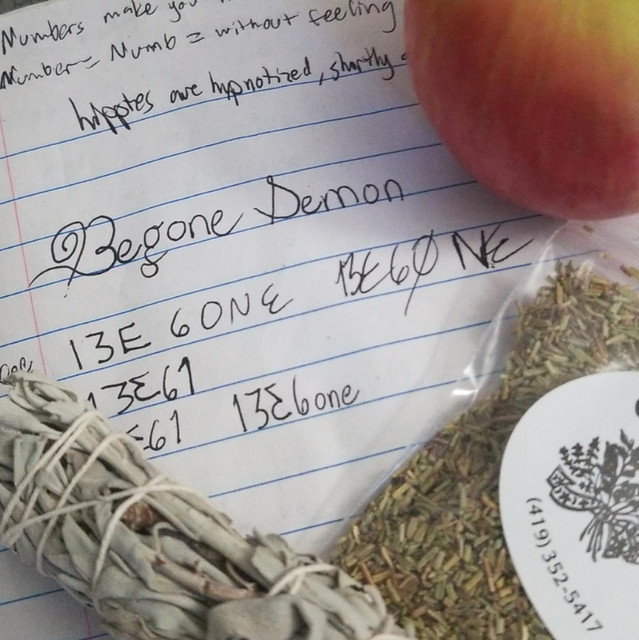 Numbers make you
Number = Numb = without feeling
hipptes are hypnotized, shortly
Begone Demon
13E 6ONE BE6Ø NE
13Σ61
Σ61 13Σ6one
(419) 352-5417